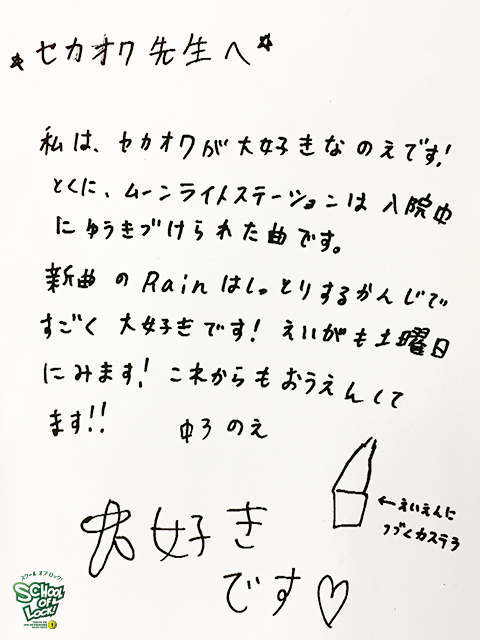 ☆セカオワ先生へ☆
私は、セカオワが大好きなのえです!
とくに、ムーンライトステーションは入院中
にゆうきづけられた曲です。
新曲のRainはしっとりするかんじで
すごく大好きです!えいがも土曜日
にみます!これからもおうえんして
ます!!
ゆうのえ
←えいえんに
つづくカステラ
大好き
です♡
スクールオブロック!
SCHOOL
OF
LOCK!